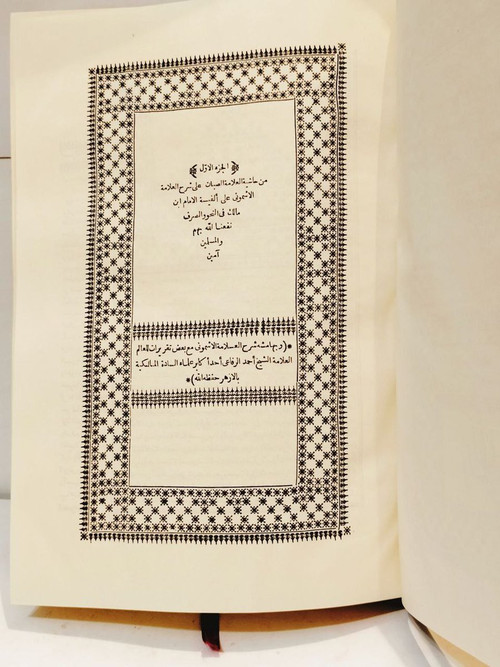 ﴿ الجزء الاوّل ﴾
من حاشية العلامة الصبان على شرح العلامة
الاشمونى على ألفية الامام ابن
مالك فى النحو والصرف
نفعنا الله بهم
والمسلمين
آمين
*(وبهامشه شرح العلامة الاشمونى مع بعض تقريرات للعالم
العلامة الشيخ أحمد الرفاعى أحد أكابر علماء السادة المالكية
بالازهر حفظه الله)*